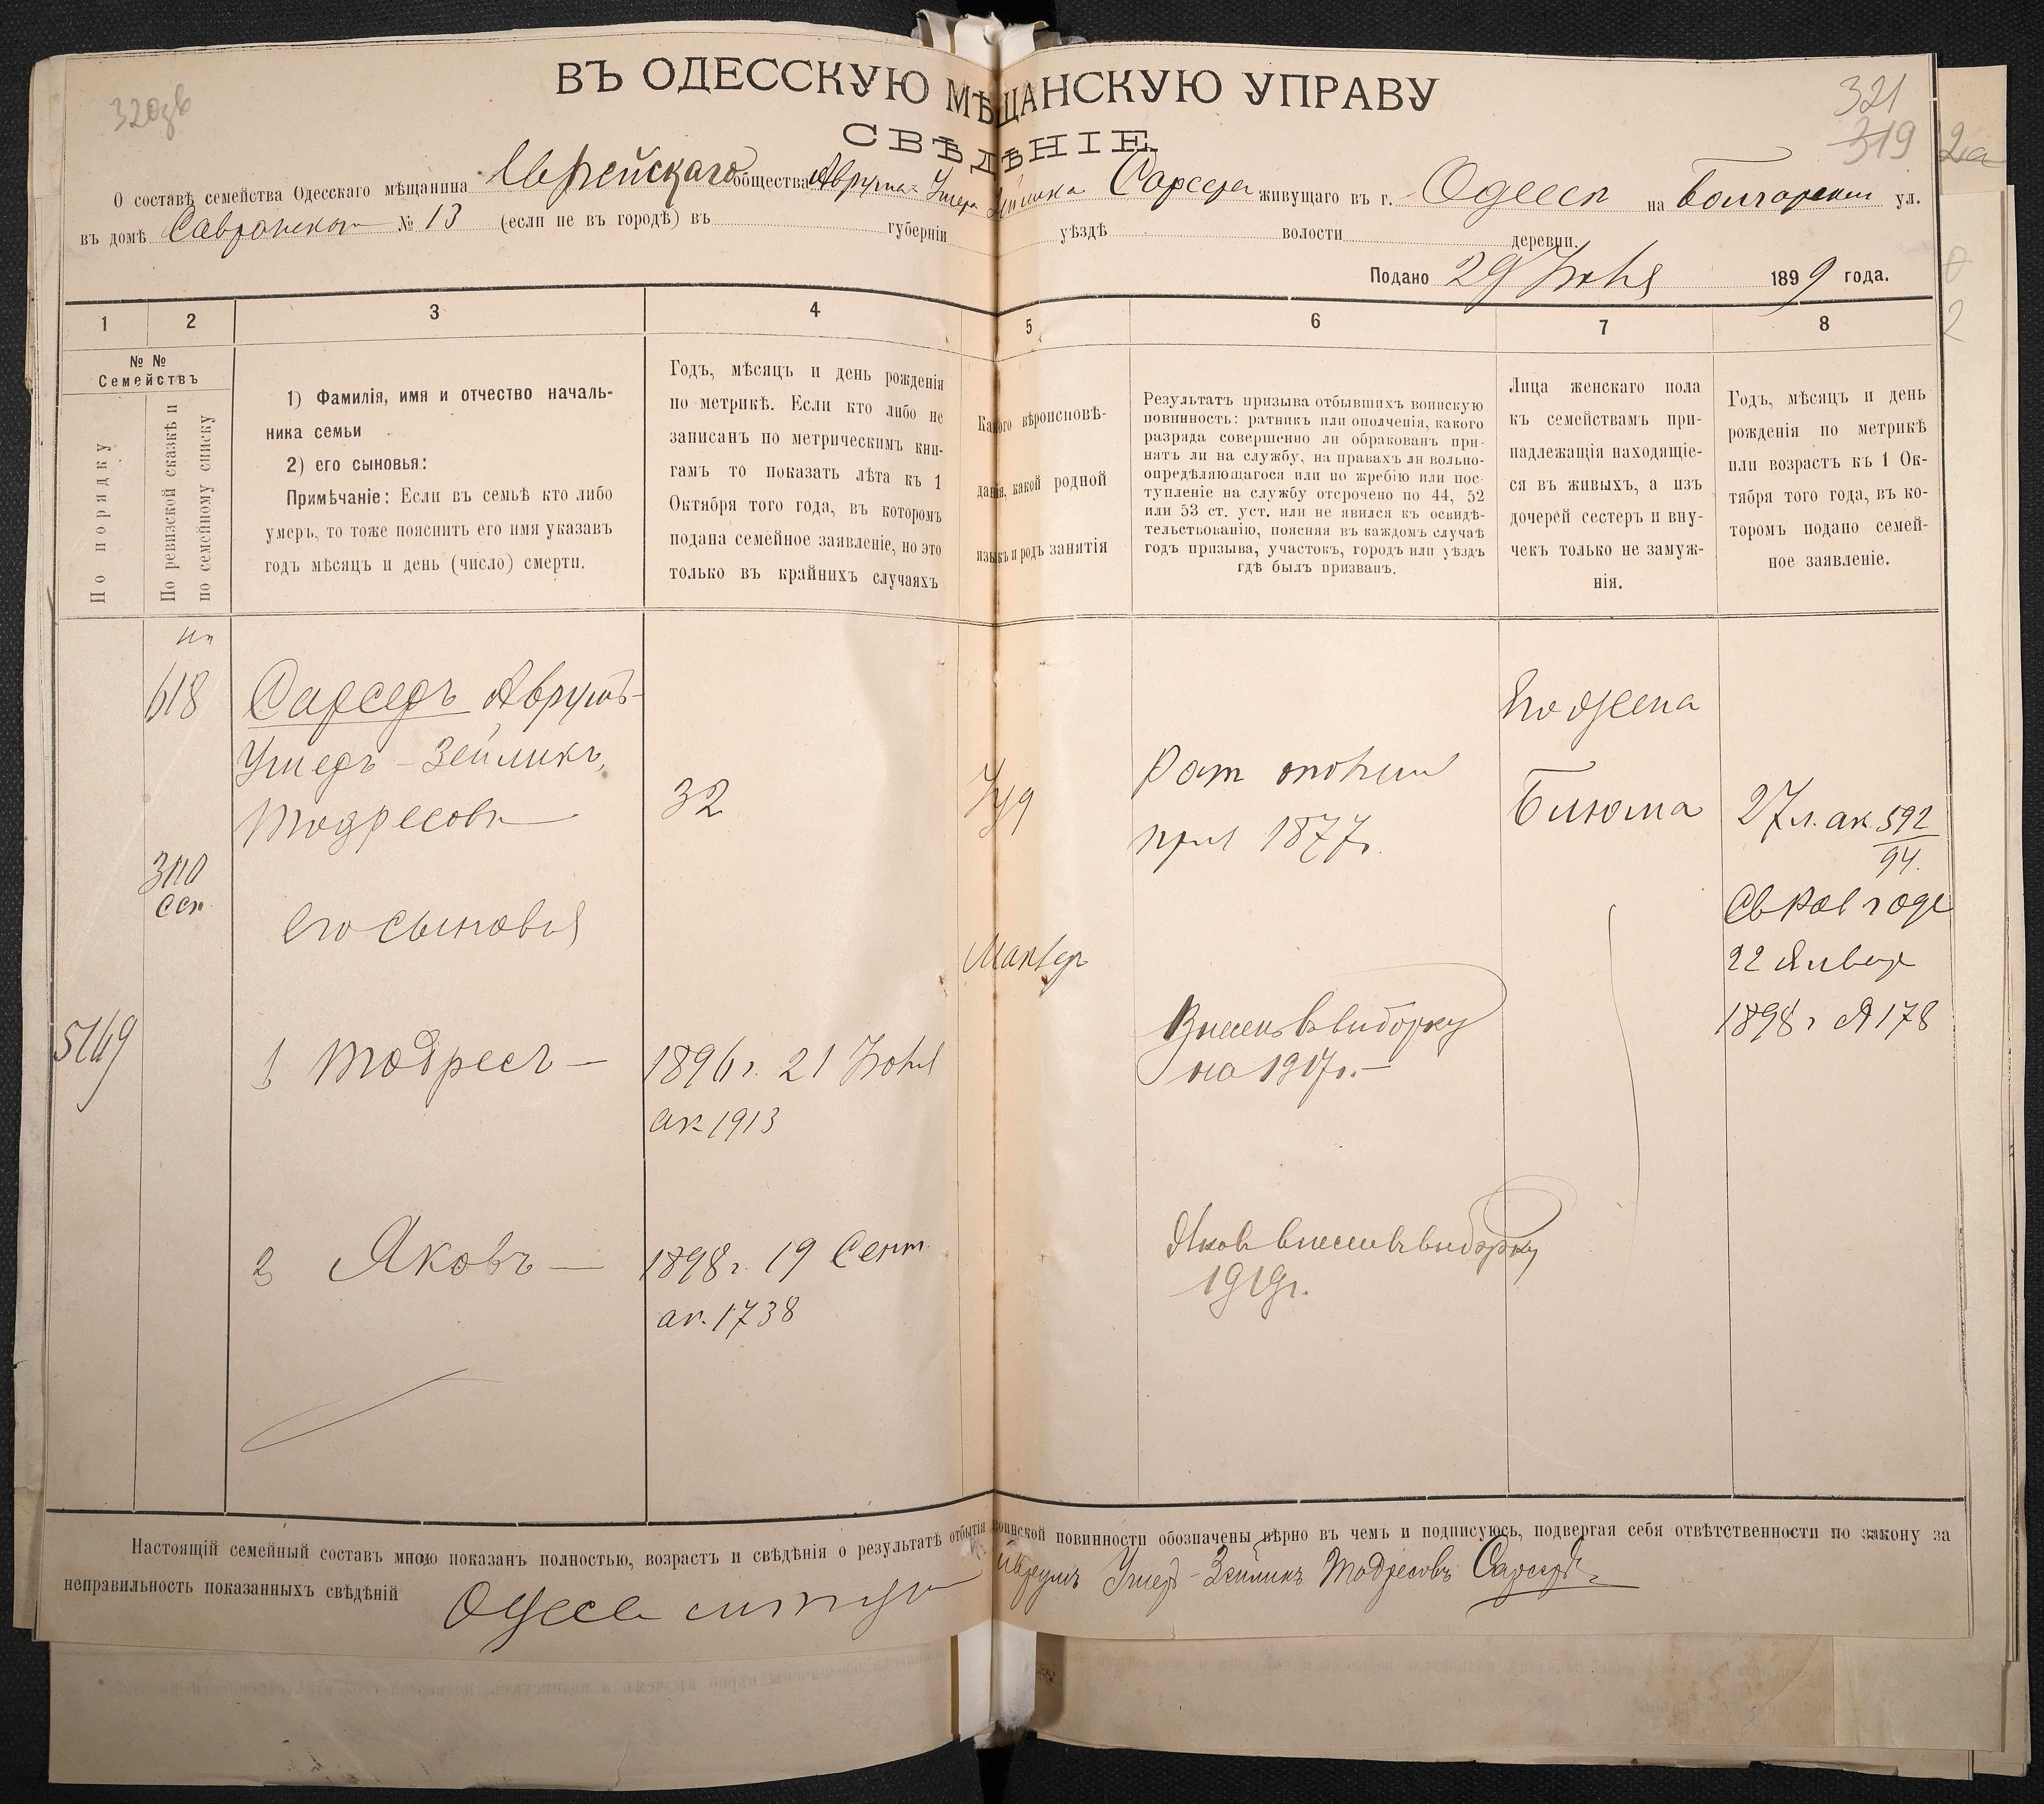 320 об
321
319
2а
ВЪ ОДЕССКУЮ МѢЩАНСКУЮ УПРАВУ
СВѢДѢНІЕ
О составѣ семейства Одесскаго мѣщанина Еврейскаго общества Аврума Ушера Зейлика Сарсера живущаго въ г. Одессѣ на Болгарской ул.
въ домѣ Савранскаго № 13 (если не въ городѣ) въ губерніи уѣздѣ волости деревни.
Подано 29 Іюня 1899 года.
1 2 3 4 5 6 7 8
№ №
Семействъ
По порядку
По ревизской сказкѣ и
по семейному списку
1) Фамилія, имя и отчество началь-
ника семьи
2) его сыновья:
Примѣчаніе: Если въ семьѣ кто либо
умеръ, то тоже пояснить его имя указавъ
годъ мѣсяцъ и день (число) смерти.
Годъ, мѣсяцъ и день рожденія
по метрикѣ. Если кто либо не
записанъ по метрическимъ кни-
гамъ то показать лѣта къ 1
Октября того года, въ которомъ
подана семейное заявленіе, но это
только въ крайнихъ случаяхъ
Какого вѣроисповѣ-
данія, какой родной
языкъ и родъ занятія
Результатъ призыва отбывшихъ воинскую
повинность: ратникъ или ополченія, какого
разряда совершенно ли обракованъ при-
нятъ ли на службу, на правахъ ли вольно-
опредѣляющагося или по жребію или пос-
тупленіе на службу отсрочено по 44, 52
или 53 ст. уст. или не явился къ освидѣ-
тельствованію, поясняя въ каждомъ случаѣ
годъ призыва, участокъ, городъ или уѣздъ
гдѣ былъ призванъ.
Лица женскаго пола
къ семействамъ при-
надлежащія находящіе-
ся въ живыхъ, а изъ
дочерей сестеръ и вну-
чекъ только не замуж-
нія.
Годъ, мѣсяцъ и день
рожденія по метрикѣ
или возрастъ къ 1 Ок-
тября того года, въ ко-
торомъ подано семей-
ное заявленіе.
618
Сарсеръ Аврумъ-
Ушеръ-Зейликъ
Тодресовъ
32
Іуд
Рат ополч
1877г.
Его жена
Блюма
27 л. ак. 592
94.
22 Января
1898 г № 178
Его сыновья
Маклер
5149
1 Тодресъ —
1896 г. 21 Іюня
ак 1913
Внесенъ въ выборку
на 1917г. —
2 Яковъ —
1898 г. 19 Сент.
ак. 1738
Яковъ внесенъ въ выборку
1919г.
Настоящій семейный составъ мною показанъ полностью, возрастъ и свѣдѣнія о результатѣ отбытія воинской повинности обозначены вѣрно въ чемъ и подписуюсь, подвергая себя отвѣтственности по закону за
неправильность показанныхъ свѣдѣній Аврумъ Ушеръ-Зейликъ Тодресовъ Сарсеръ